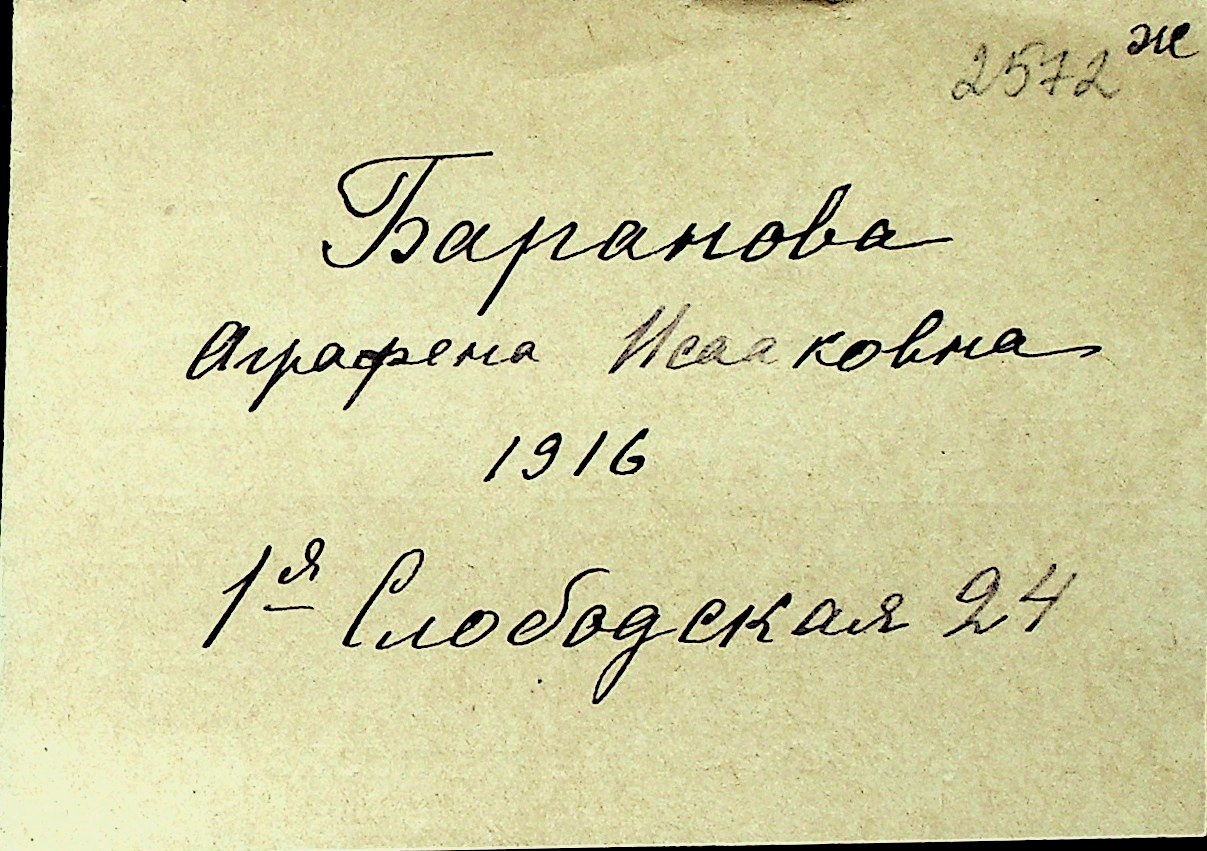 2572 ж
Баранова
Аграфена Исааковна
1916
1я Слободская 24